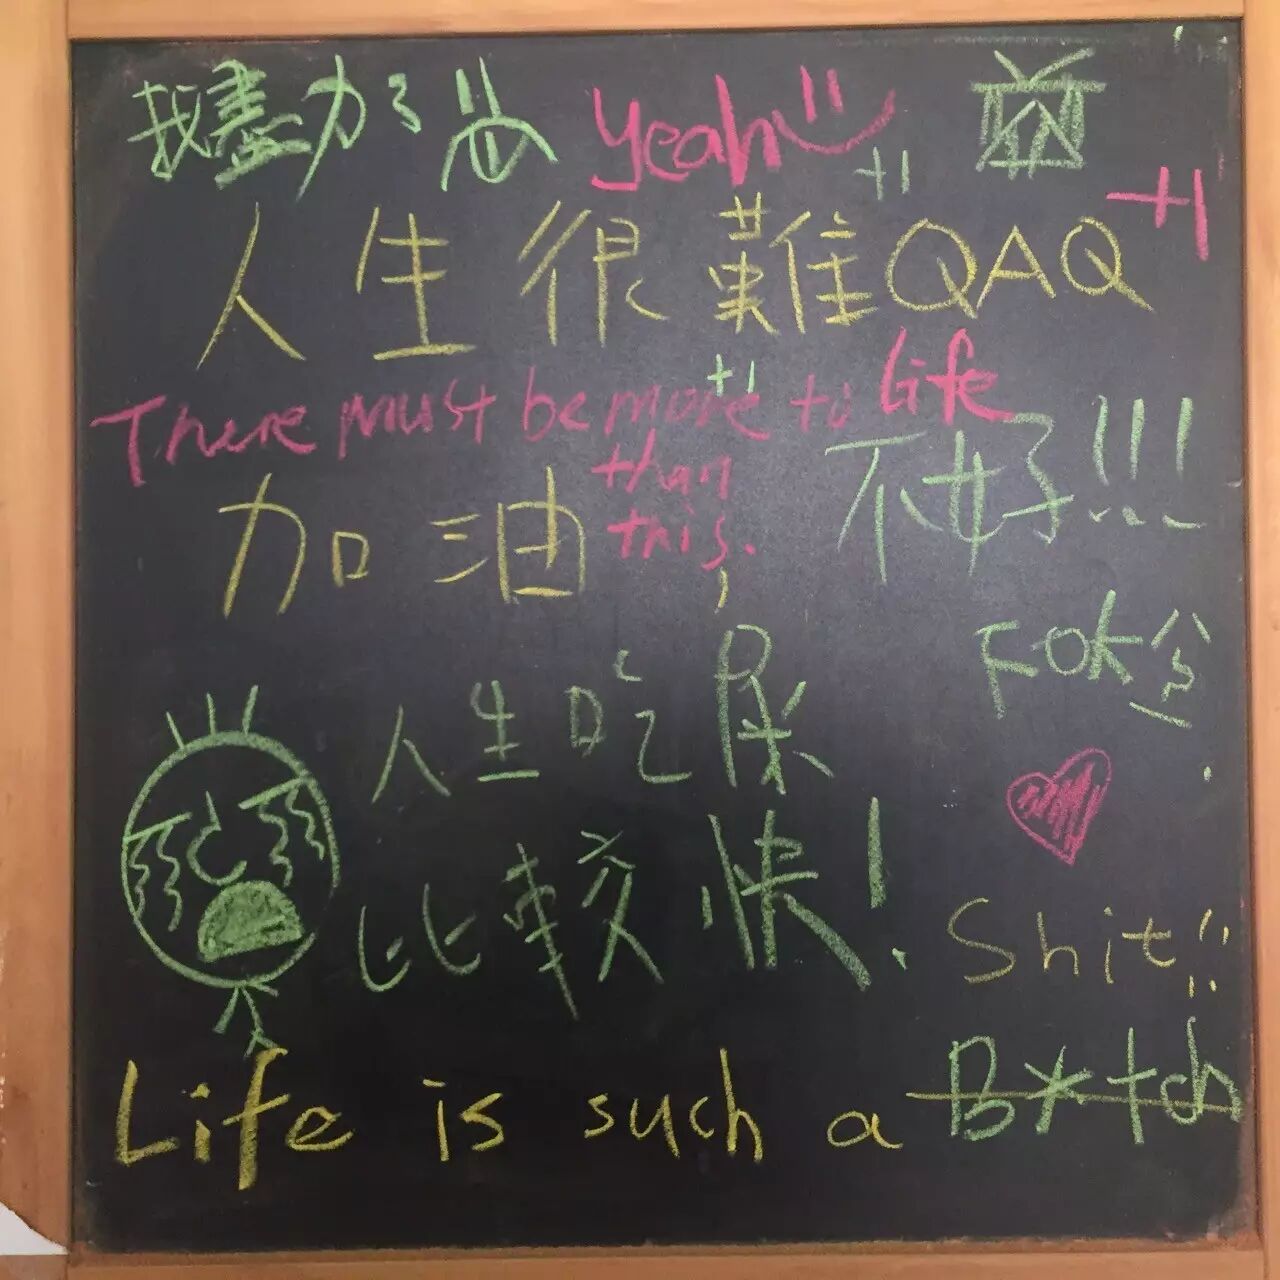 我盡力了 yeah
+1
+1
人生很難QAQ
+1
There must be more to life
than
this.
不好!!!
加油
人生吃屎
比較快!
Shit!!
Life is such a B*tch